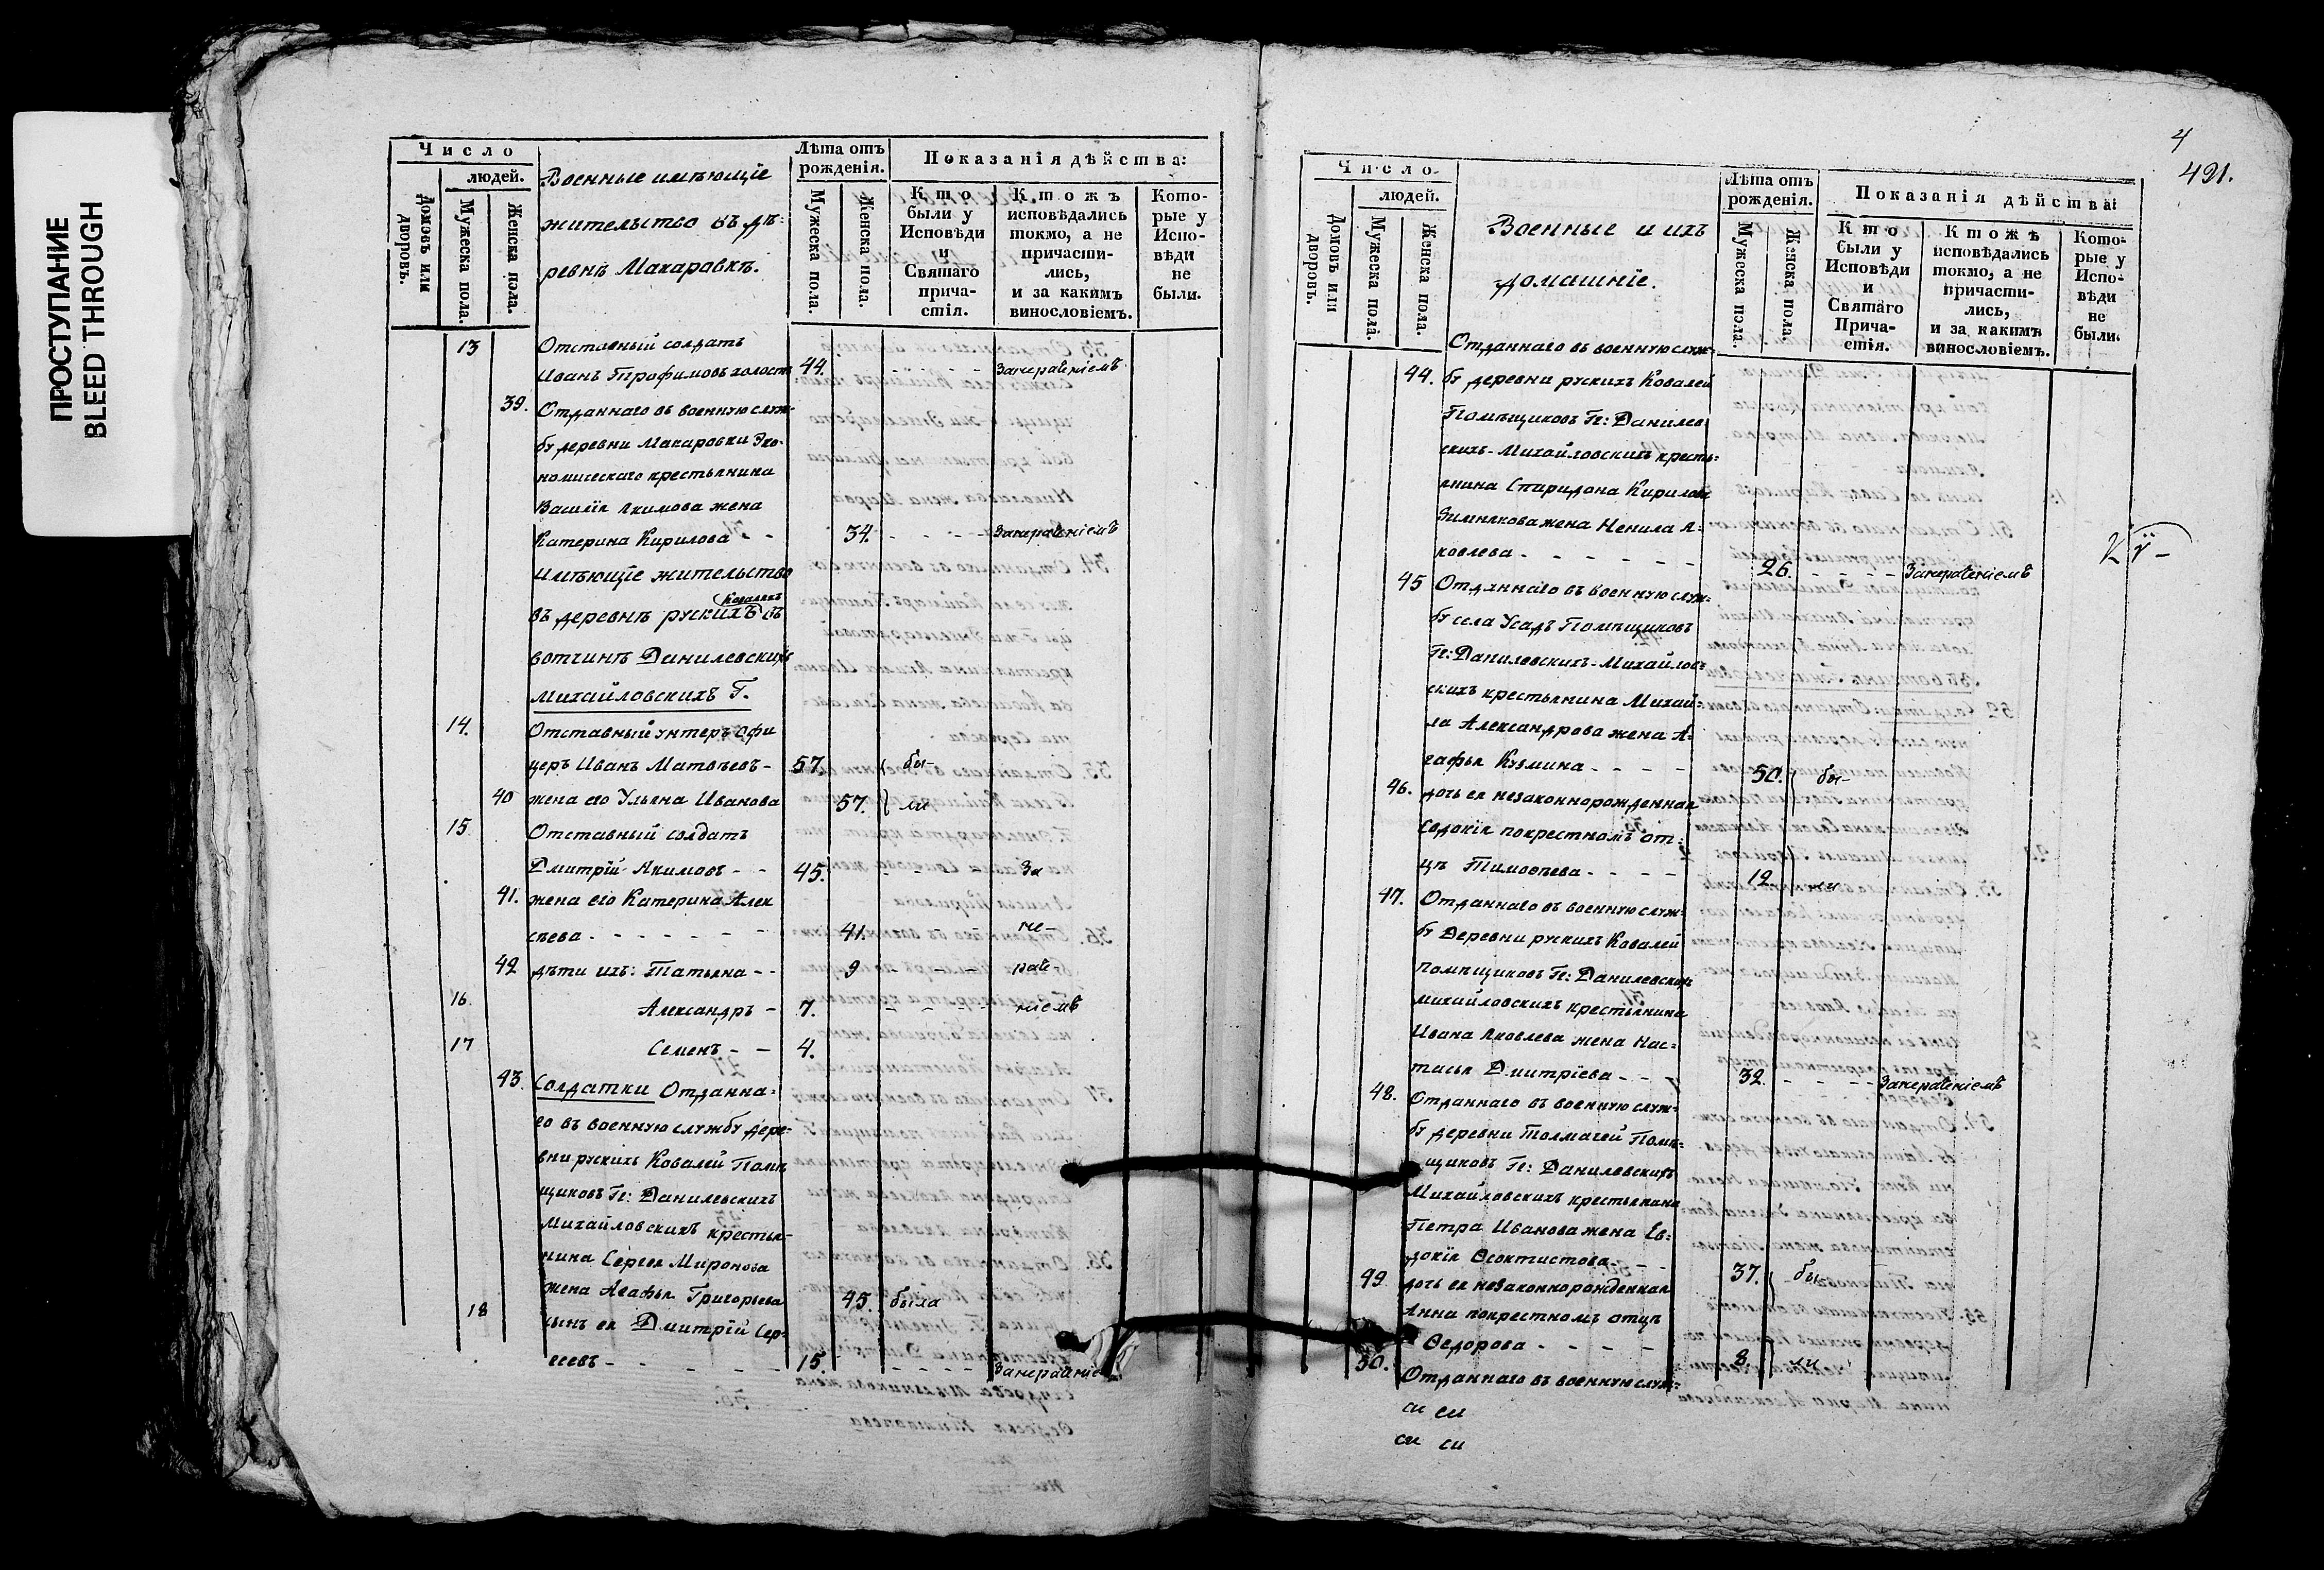 ПРОСТУПАНИЕ
BLEED THROUGH
Число
людей.
Домовъ или дворовъ.
Мужеска пола.
Женска пола.
Военные имѣющіе
жительство въ дѣ-
ревнѣ Макаровкѣ.
Лѣта отъ
рожденія.
Мужеска пола.
Женска пола.
Показанія дѣйства:
Кто
были у
Исповѣди
и
Святаго
прича-
стія.
Ктожъ
исповѣдались
токмо, а не
причасти-
лись,
и за какимъ
винословіемъ.
Кото-
рые у
Испо-
вѣди
не
были.
13 Отставный солдатъ
Иванъ Трофимовъ холостъ 44. - - - - Занерѣченіемъ
39. Отданнаго въ военную служ-
бу деревни Макаровки Эко-
номическаго крестьянина
Василія Якимова жена
Катерина Кирилова - 34. - - - - Занерѣченіемъ
Имѣющіе жительство
Коваляхъ
въ деревнѣ рускихъ въ
вотчинѣ Данилевскихъ
Михайловскихъ Г.
14. Отставный унтеръ офи
церъ Иванъ Матвѣевъ - 57. бы-
40 жена его Ульяна Иванова 57. ли
15 Отставный солдатъ
Дмитрій Якимовъ - - 45. - - - За
41. жена его Катерина Алек
сѣева - - - - - - 41. - - - не-
42 дѣти ихъ: Татьяна - - 9 - - - рѣче-
16. Александръ - 7. - - - - ніемъ
17 Семенъ - - 4.
43. Солдатки Отданна-
го въ военную службу дере-
вни рускихъ Ковалей Помѣ
щиковъ Гг: Данилевскихъ
Михайловскихъ крестья-
нина Сергея Миронова
жена Агафья Григорьева 45. была
18 сынъ ея Дмитрій Сер-
геевъ - - - - - - 15. - - - - Занерѣченіе
4
491.
Число
людей.
Домовъ или дворовъ.
Мужеска пола.
Женска пола.
Военные и ихъ
домашніе.
Лѣта отъ
рожденія.
Мужеска пола.
Женска пола.
Показанія дѣйства:
Кто
были у
Исповѣди
и
Святаго
Прича-
стія.
Ктожъ
исповѣдались
токмо, а не
причасти-
лись,
и за какимъ
винословіемъ.
Кото-
рые у
Испо-
вѣди
не
были.
Отданнаго въ военную служ-
44. бу деревни рускихъ Ковалей
Помѣщиковъ Гг: Данилев-
скихъ-Михайловскихъ кресть-
янина Спиридона Кирилова
Зимнякова жена Ненила Я-
ковлева - - - - - - 26. - - - - Занерѣченіемъ
45 Отданнаго въ военную служ-
бу села Усадъ Помѣщиковъ
Гг: Данилевскихъ-Михайлов-
скихъ крестьянина Михай-
ла Александрова жена А-
гафья Кузмина - - - - 50. бы-
46. дочь ея незаконнорожденная
Евдокія покрестномъ от-
цѣ Тимофѣева - - - - 12 ли
47. Отданнаго въ военную служ-
бу Деревни рускихъ Ковалей
помѣщиковъ Гг: Данилевскихъ
Михайловскихъ крестьянина
Ивана Яковлева жена Нас-
тасья Дмитріева - - 32. - - - - Занерѣченіемъ
48. Отданнаго въ военную служ-
бу деревни Толмачей Помѣ-
щиковъ Гг: Данилевскихъ
Михайловскихъ крестьянина
Петра Иванова жена Ев-
докія Ѳеоктистова - - 37. бы-
49 дочь ея незаконнорожденная
Анна покрестномъ отцѣ
Ѳедорова - - - - 8. ли
50. Отданнаго въ военную служ-